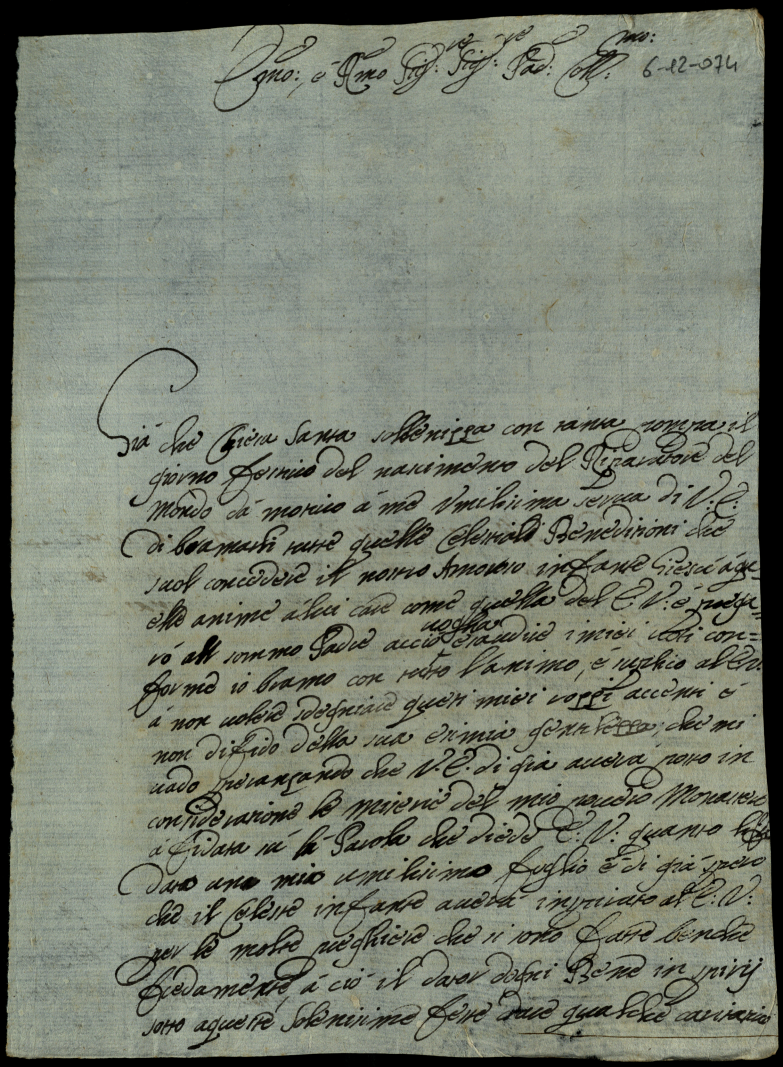 Emo:, é Rmo Sig:re Sig:re Pad: Coll:mo:
6-12-074
Giá che Chiesa Santa sollenizza con tanta pompa il
giorno festivo del nascimento del Riparatore del
Mondo dá motivo á me Umilissima serva di V. E.
di bramarli tutte quelle Celestiali Benedizioni che
suol concedere il nostro Amoroso infante Giesú á qu-
elle anime á lui care come quella del E. V. é prega-
ró all sommo Padre acció voglia esaudire i miei Voti con=
forme io bramo con tutto l'animo, é suplico al E V.
á non volere sdegniare questi miei rozzi accenti é
non difido della sua esimia gentilezza, che mi
vado speranzando che V. E. di giá averá posto in
considerazione le miserie del mio povero Monastero
á fidata sú la Parola che diede E. V. quanto
dato una mia umilissima foglio é di giá spero
che il Celeste infante averá inspirato al E. V.
per le molte preghiere che si sono fatte benche
fredamente, á ció il dator d'ogni Bene inspirij
sotto aqueste solenissime feste dare qualche caritativo